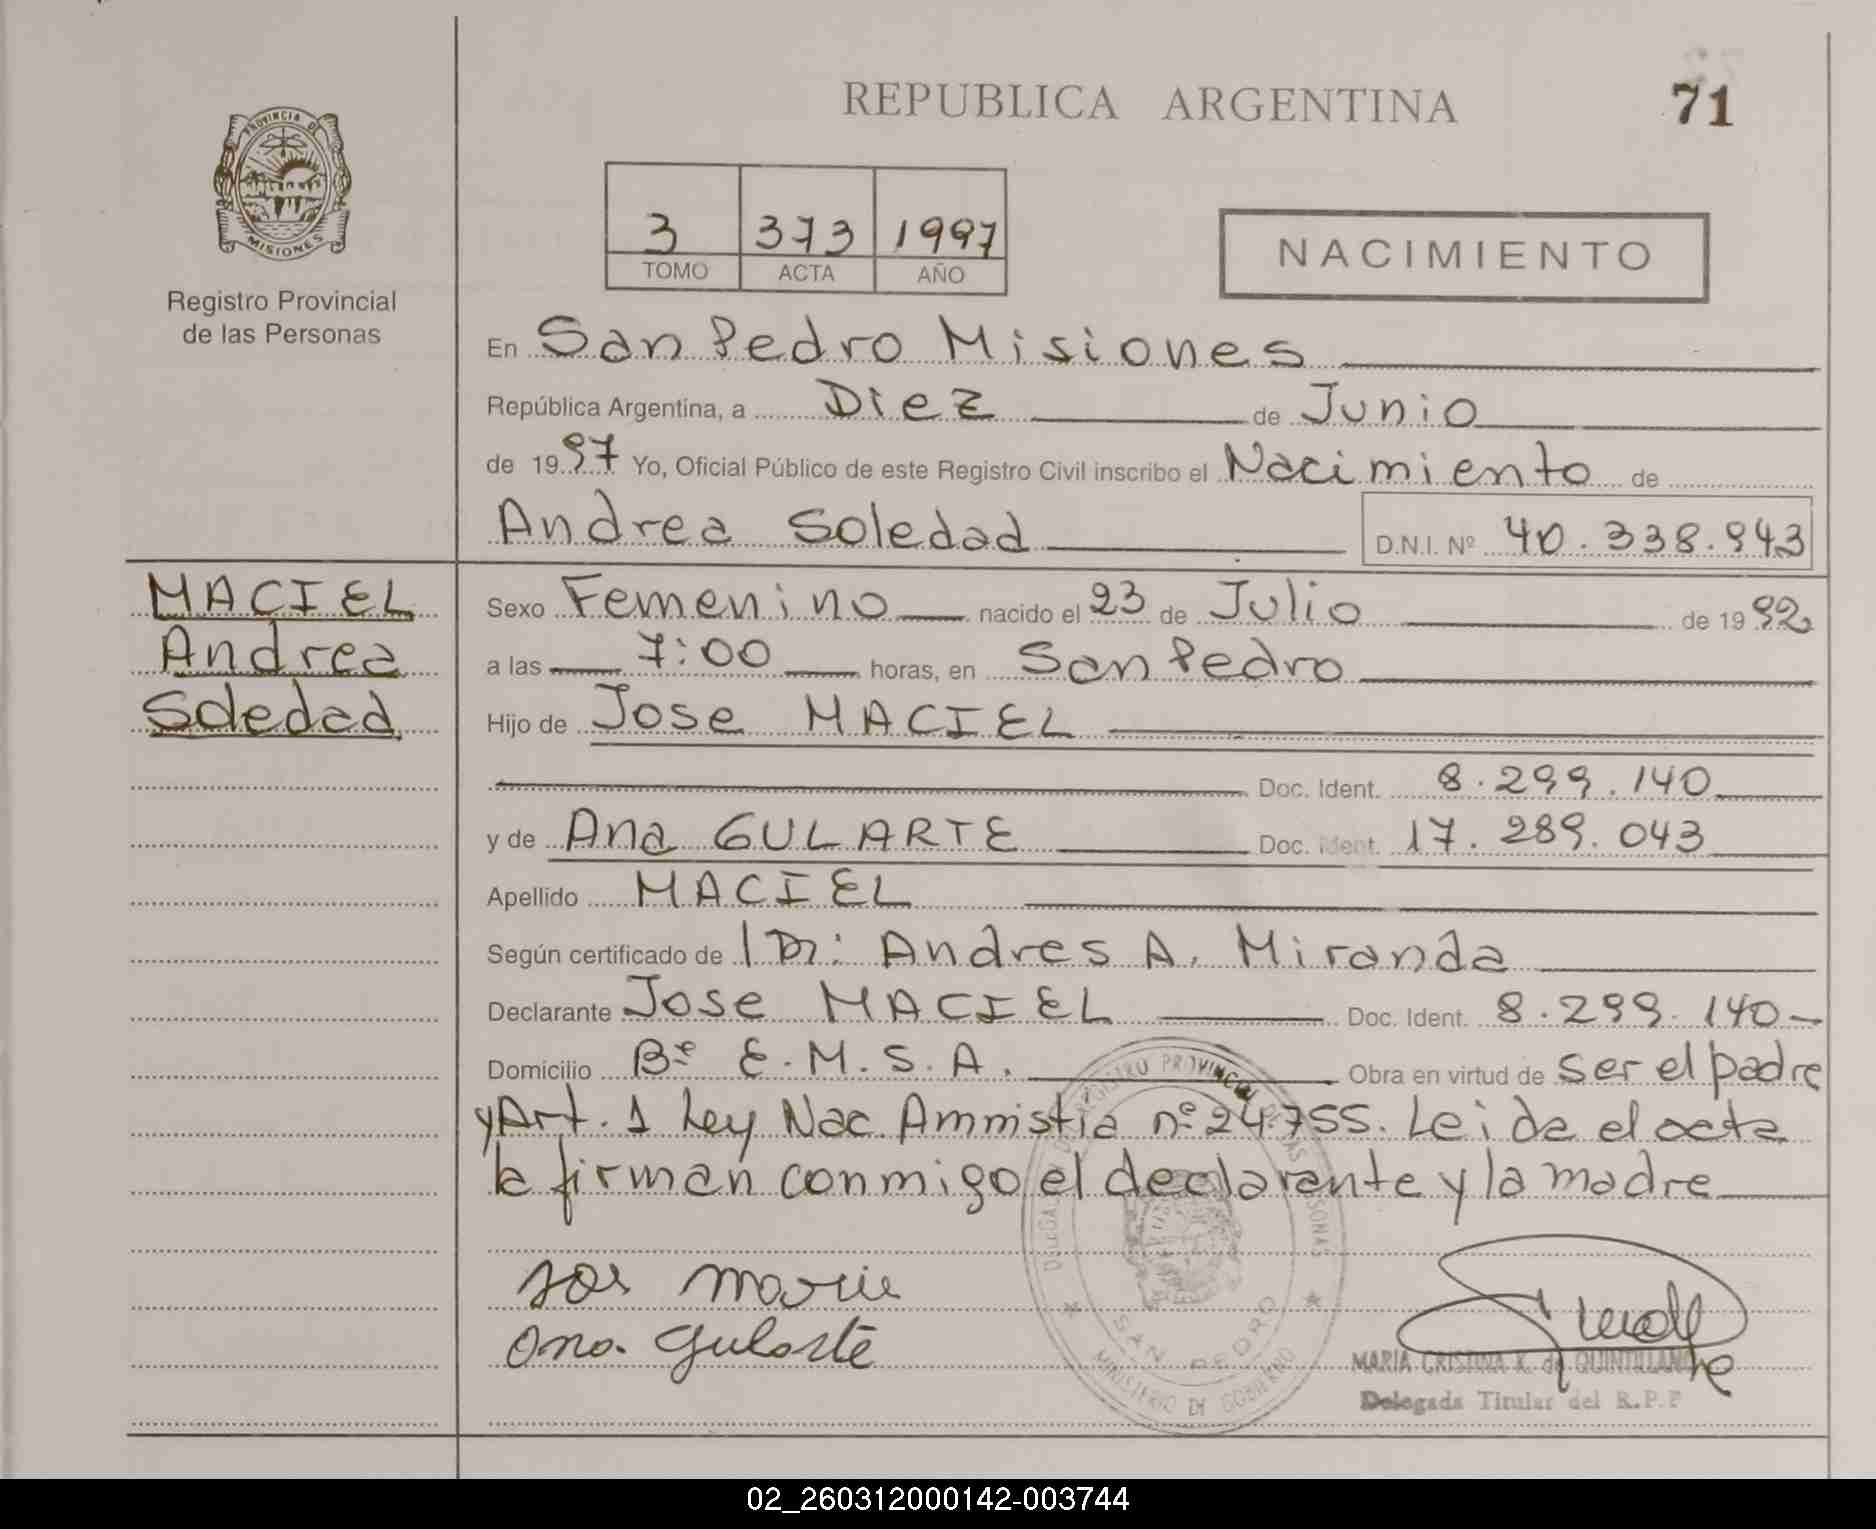 REPUBLICA ARGENTINA
71
PROVINCIA DE
MISIONES
Registro Provincial
de las Personas
3 373 1997
TOMO ACTA AÑO
NACIMIENTO
En San Pedro Misiones
República Argentina, a Diez de Junio
de 1997 Yo, Oficial Público de este Registro Civil inscribo el Nacimiento de
Andrea Soledad D.N.I. Nº 40.338.943
MACIEL
Andrea
Soledad
Sexo Femenino nacido el 23 de Julio de 1992
a las 7:00 horas, en San Pedro
Hijo de Jose MACIEL
Doc. Ident. 8.299.140
y de Ana GULARTE Doc. Ident. 17.289.043
Apellido MACIEL
Según certificado de Dr: Andres A. Miranda
Declarante Jose MACIEL Doc. Ident. 8.299.140-
Domicilio Bº E.M.S.A. Obra en virtud de ser el padre
y Art. 1 Ley Nac. Amnistia nº 24.755. Leida el acta
la firman conmigo el declarante y la madre
Ana. Gularte
REGISTRO PROVINCIAL DE LAS PERSONAS
SAN PEDRO
MINISTERIO DE GOBIERNO
MARIA CRISTINA K. de QUINTILLAN
Delegada Titular del R.P.P
02_260312000142-003744